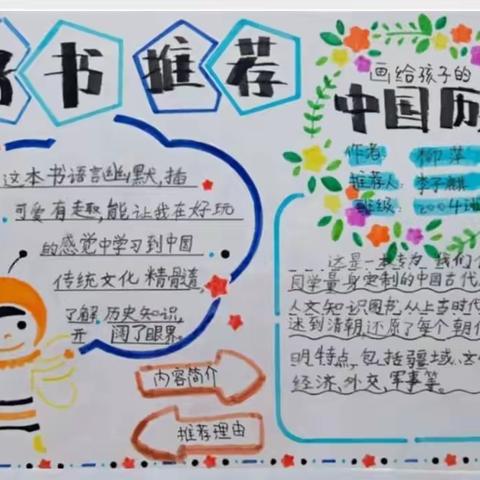 好书推荐
这本书语言幽默,插
可爱有趣,能让我在好玩
的感觉中学习到中国
传统文化精髓,
了解历史知识,
开阔了眼界。
内容简介
推荐理由
画给孩子的
中国历
作者:柳萍
推荐人:李子麒
班级:2004班
这是一本专为我们
同学量身定制的中国古代
人文知识图书,从上古时代
述到清朝,还原了每个朝代
明特点,包括疆域、文
经济、外交,军事等。